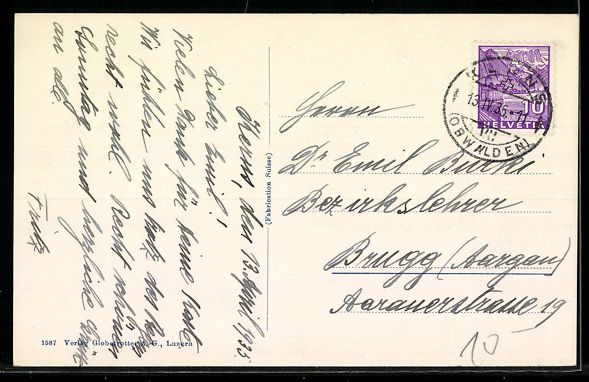 Kerns, den 13. April 1935
Lieber Emil!
Vielen Dank für Deine Karte.
Wir fühlen uns trotz des
recht wohl. Recht schönen
Sonntag und herzliche Grüße
an alle.
Fritz
(Fabrication Suisse)
1587 Verlag Globetrotter A.-G., Luzern
KERNS
13.IV.35
(OBWALDEN)
10
HELVETIA
Herrn
Dr Emil Burki
Bezirkslehrer
Brugg (Aargau)
Aarauerstrasse 19
10